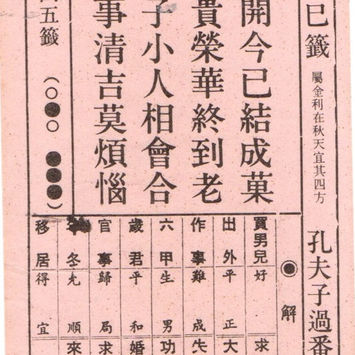 巳籤 屬金利在秋天宜其四方 孔夫子過番
開今已結成菓
貴榮華終到老
子小人相會合
事清吉莫煩惱
五籤 (○●○ ●●●)
解
買男兒好 求
出外平 正大
作事難 成失
六甲生 男功
歲君平 和婚
官事歸 局求
冬允 順來
移居得 宜